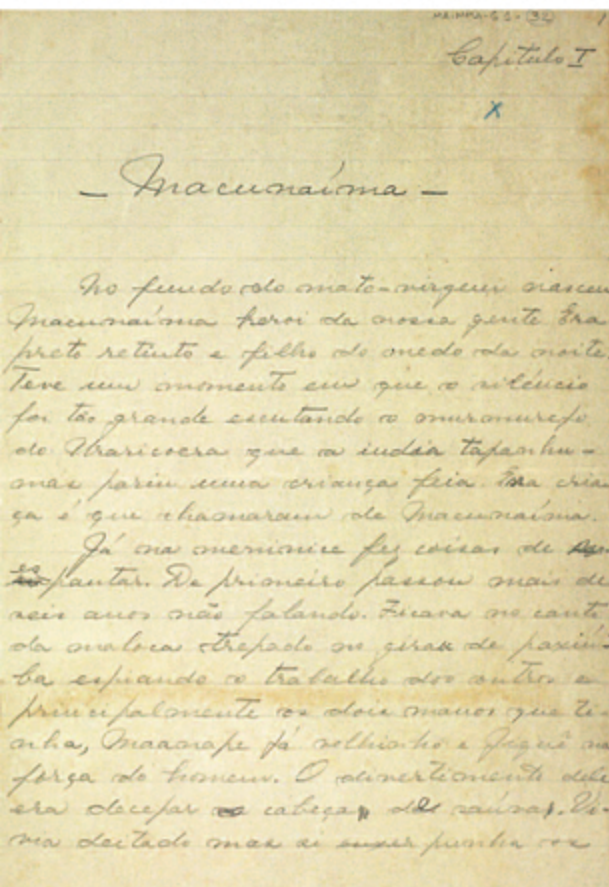 MA-MMA-65-(32) 1
Capitulo I
x
— Macunaíma —
No fundo do mato-virgem nasceu
Macunaíma heroi da nossa gente Era
preto retinto e filho do medo da noite
Teve um momento em que o silêncio
foi tão grande escutando o murmurejo
do Uraricoera que a india tapanhu-
mas pariu uma criança feia. Essa crian
ça é que chamaram de Macunaíma.
Já na meninice fez coisas de
espantar. De primeiro passou mais de
seis anos não falando. Ficava no canto
da maloca trepado no girau de paxiú-
ba espiando o trabalho dos outros e
principalmente os dois manos que ti-
nha, Maanape já velhinho e Jiguê na
força do homem. O divertimento dele
era decepar cabeça de saúva. Vi-
via deitado mas si punha os